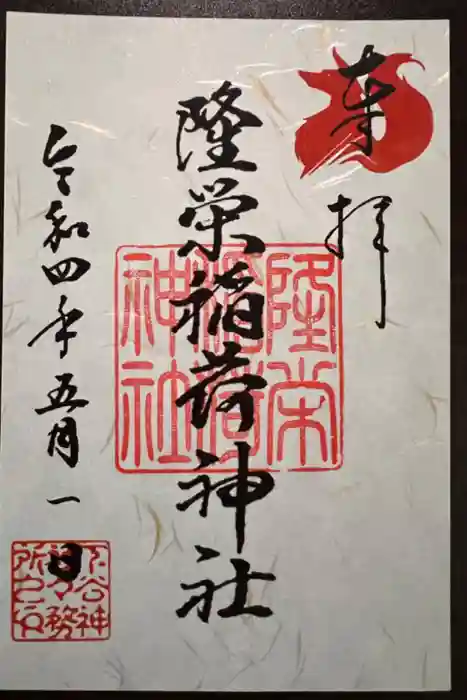 奉拝
隆栄稲荷神社
隆栄稲荷神社
令和四年五月一日